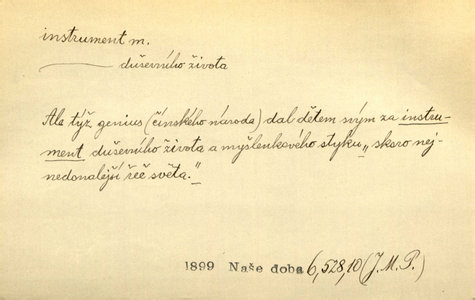 instrument m.
——— duševního života
Ale týž genius (čínského národa) dal dětem svým za instru-
ment duševního života a myšlenkového styku „skoro nej-
nedonalejší řeč světa."
1899 Naše doba 6,528,10 (J. M. P.)